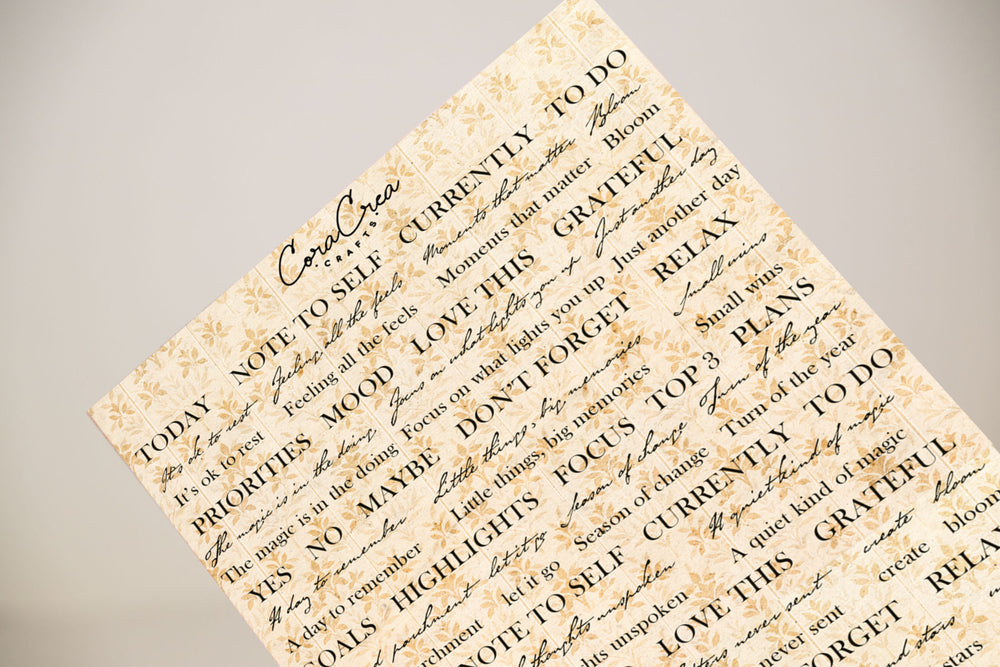 CoraCrea
CRAFTS
TODAY NOTE TO SELF CURRENTLY TO DO
It's ok to rest Feeling all the feels Moments that matter Bloom
It's ok to rest Feeling all the feels Moments that matter Bloom
PRIORITIES MOOD LOVE THIS GRATEFUL
The magic is in the doing Focus on what lights you up Just another day
The magic is in the doing Focus on what lights you up Just another day
YES NO MAYBE DON'T FORGET RELAX
A day to remember Little things, big memories Small wins
A day to remember Little things, big memories Small wins
GOALS HIGHLIGHTS FOCUS TOP 3 PLANS
parchment let it go Season of change Turn of the year
let it go Season of change Turn of the year
NOTE TO SELF CURRENTLY TO DO
thoughts unspoken A quiet kind of magic
unspoken A quiet kind of magic
LOVE THIS GRATEFUL
never sent create bloom
never sent create bloom
FORGET
stars
stars